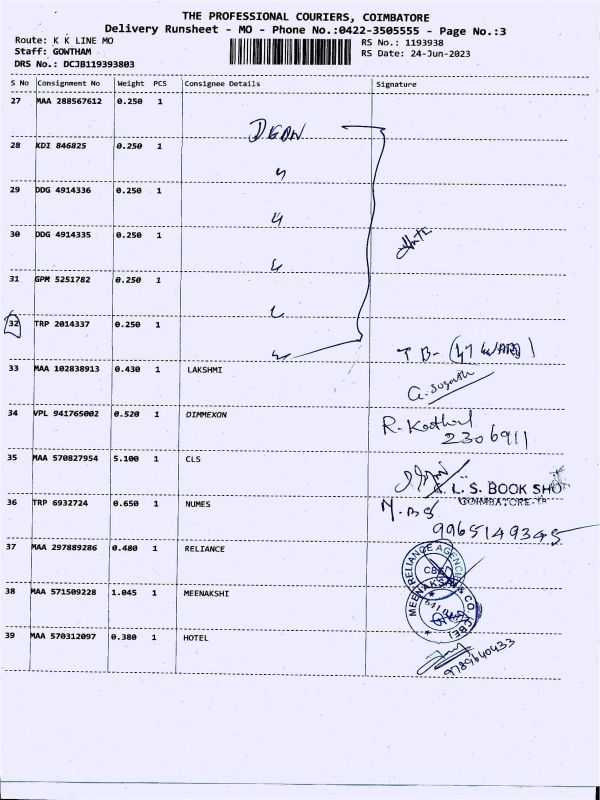 THE PROFESSIONAL COURIERS, COIMBATORE
Delivery Runsheet - MO - Phone No.:0422-3505555 - Page No.:3
Route: K K LINE MO
RS No.: 1193938
Staff: GOWTHAM
RS Date: 24-Jun-2023
DRS No.: DCJB119393803
S No Consignment No Weight PCS Consignee Details Signature
27 MAA 288567612 0.250 1
28 KDI 846825 0.250 1
29 DDG 4914336 0.250 1
30 DDG 4914335 0.250 1
31 GPM 5251782 0.250 1
32 TRP 2014337 0.250 1
33 MAA 102838913 0.430 1 LAKSHMI
34 VPL 941765002 0.520 1 DIMMEXON
2306911
35 MAA 570827954 5.100 1 CLS
L. S. BOOK SHO
COIMBATORE
36 TRP 6932724 0.650 1 NUMES
9965149345
37 MAA 297889286 0.480 1 RELIANCE
RELIANCE AGENCI
38 MAA 571509228 1.045 1 MEENAKSHI
MEENAKSHI & CO. (CBE)
39 MAA 570312097 0.380 1 HOTEL
9789640433